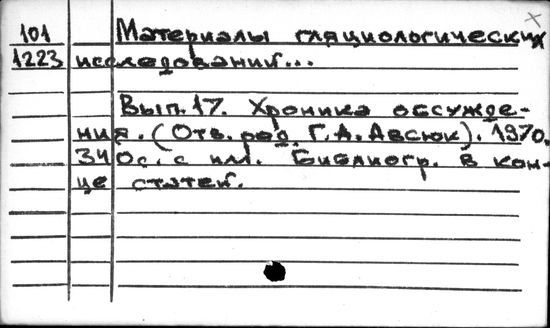 101 Материалы гляциологических
1223 исследований...
Вып.17. Хроника обсужде-
ния. (Отв. ред. Г.А.Авсюк). 1970.
340с. с илл. Библиогр. в кон-
це статей.